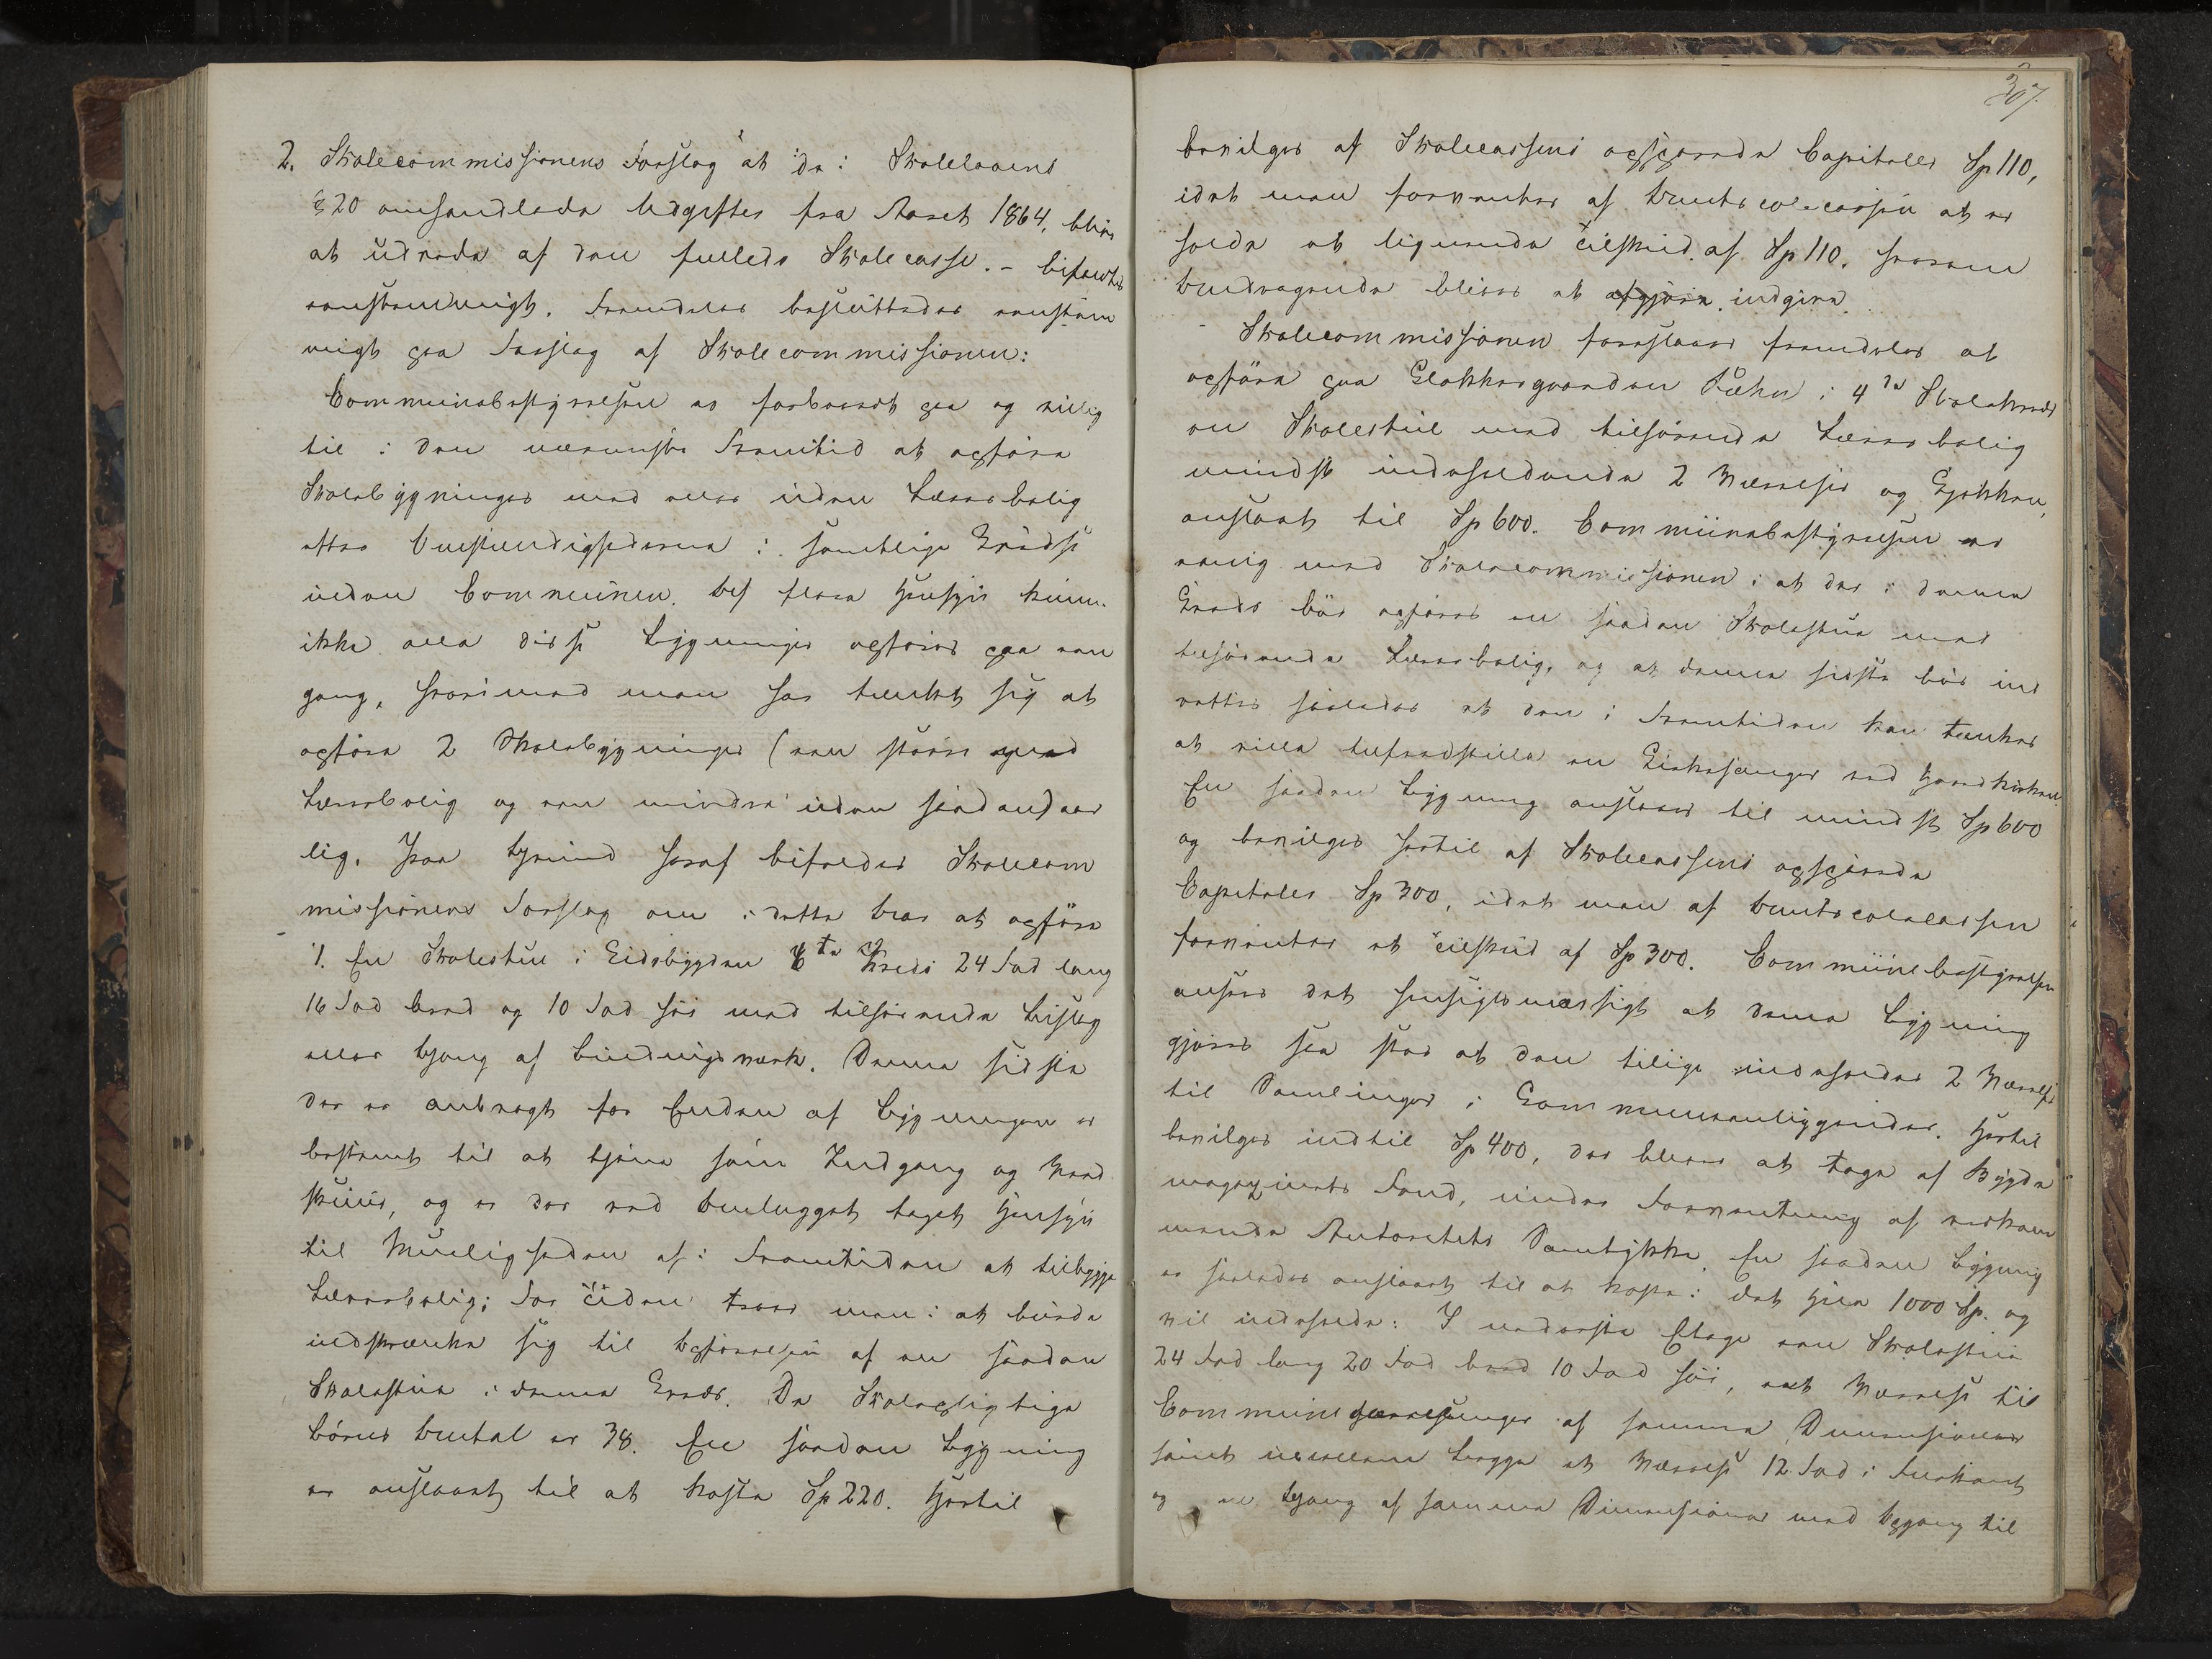 2. Skolecommissionens Forslag at de i Skolelovens
§ 20 omhandlede Udgifter fra Aaret 1864, bliver
at udrede af den fælleds Skolecasse. - bifaldtes
eenstemmigt. Fremdeles besluttedes eenstem
migt paa Forslag af Skolecommissionen:
Communebestyrelsen er forberedt paa og villig
til i den nærmeste Fremtid at opføre
Skolebygninger med eller uden Lærerbolig
efter Omstændighederne i samtlige Kredse
inden Communen. Af flere Hensyn kunne
ikke alle disse Bygninger opføres paa een
gang, hvorimod man har tænkt sig at
opføre 2 Skolebygninger (een større med
Lærerbolig og een mindre uden saadan) aar
lig. Paa Grund heraf bifaldes Skolecom
missionens Forslag om i dette Aar at opføre
1. En Skolestue i Eidsbygden 6te Kreds 24 Fod lang
16 Fod bred og 10 Fod høi med tilhørende Bislag
eller Gang af Bindingsværk. Denne sidste
der er anbragt for Enden af Bygningen er
bestemt til at tjene som Indgang og Ved
skuur, og er der ved Anlægget taget Hensyn
til Mueligheden af i Fremtiden at tilbygge
Lærerbolig; For Tiden troer man i at burde
indskrænke sig til Opførelsen af en saadan
Skolestue i denne Kreds. De Skolepligtige
Børns Antal er 38. En saadan Bygning
er anslaaet til at koste Sp 220. Hertil
307.
bevilges af Skolecassens opsparede Capitaler Sp 110,
idet man forventer af Amtsscolecassen at er
holde et lignende Tilskud af Sp 110. hvorom
Andragende bliver at afgjøre. indgive.
Skolecommissionen foreslaaer fremdeles at
opføre paa Klokkergaarden i 4de Skolekreds
en Skolestue med tilhørende Lærerbolig
mindst indeholdende 2 Værelser og Kjøkken,
anslaaet til Sp 600. Communebestyrelsen er
enig med Skolecommissionen i at der i denne
Kreds bør opføres en saadan Skolestue med
tilhørende Lærerbolig, og at denne sidste bør ind
rettes saaledes at den i Fremtiden kan tænkes
at ville tilfredsstille en Kirkesanger ved Hovedkirken
En saadan Bygning anslaaes til mindst Sp 600
og bevilges hertil af Skolecassens opsparede
Capitaler Sp 300, idet man af Amtsscolecassen
forventer et Tilskud af Sp 300. Communebestyrelsen
ansees det hensigtsmæssigt at denne Bygning
gjøres saa stor at den tillige indeholder 2 Værelser
til Samlinger i Communeanliggender. Hertil
bevilges indtil Sp 400, der bliver at tage af Bygde
magazinets Fond, under Forventning af vedkom
mende Autoritets Samtykke. En saadan Bygning
er saaledes anslaaet til at koste i det Hele 1000 Sp. og
vil indeholde: I nederste Etage een Skolestue
24 Fod lang 20 Fod bred 10 Fod høi, eet Værelse til
Commune af samme Dimensioner
samt imellem begge et Værelse 12 Fod i Fiirkant
og en Gang af samme Dimensioner med Opgang til